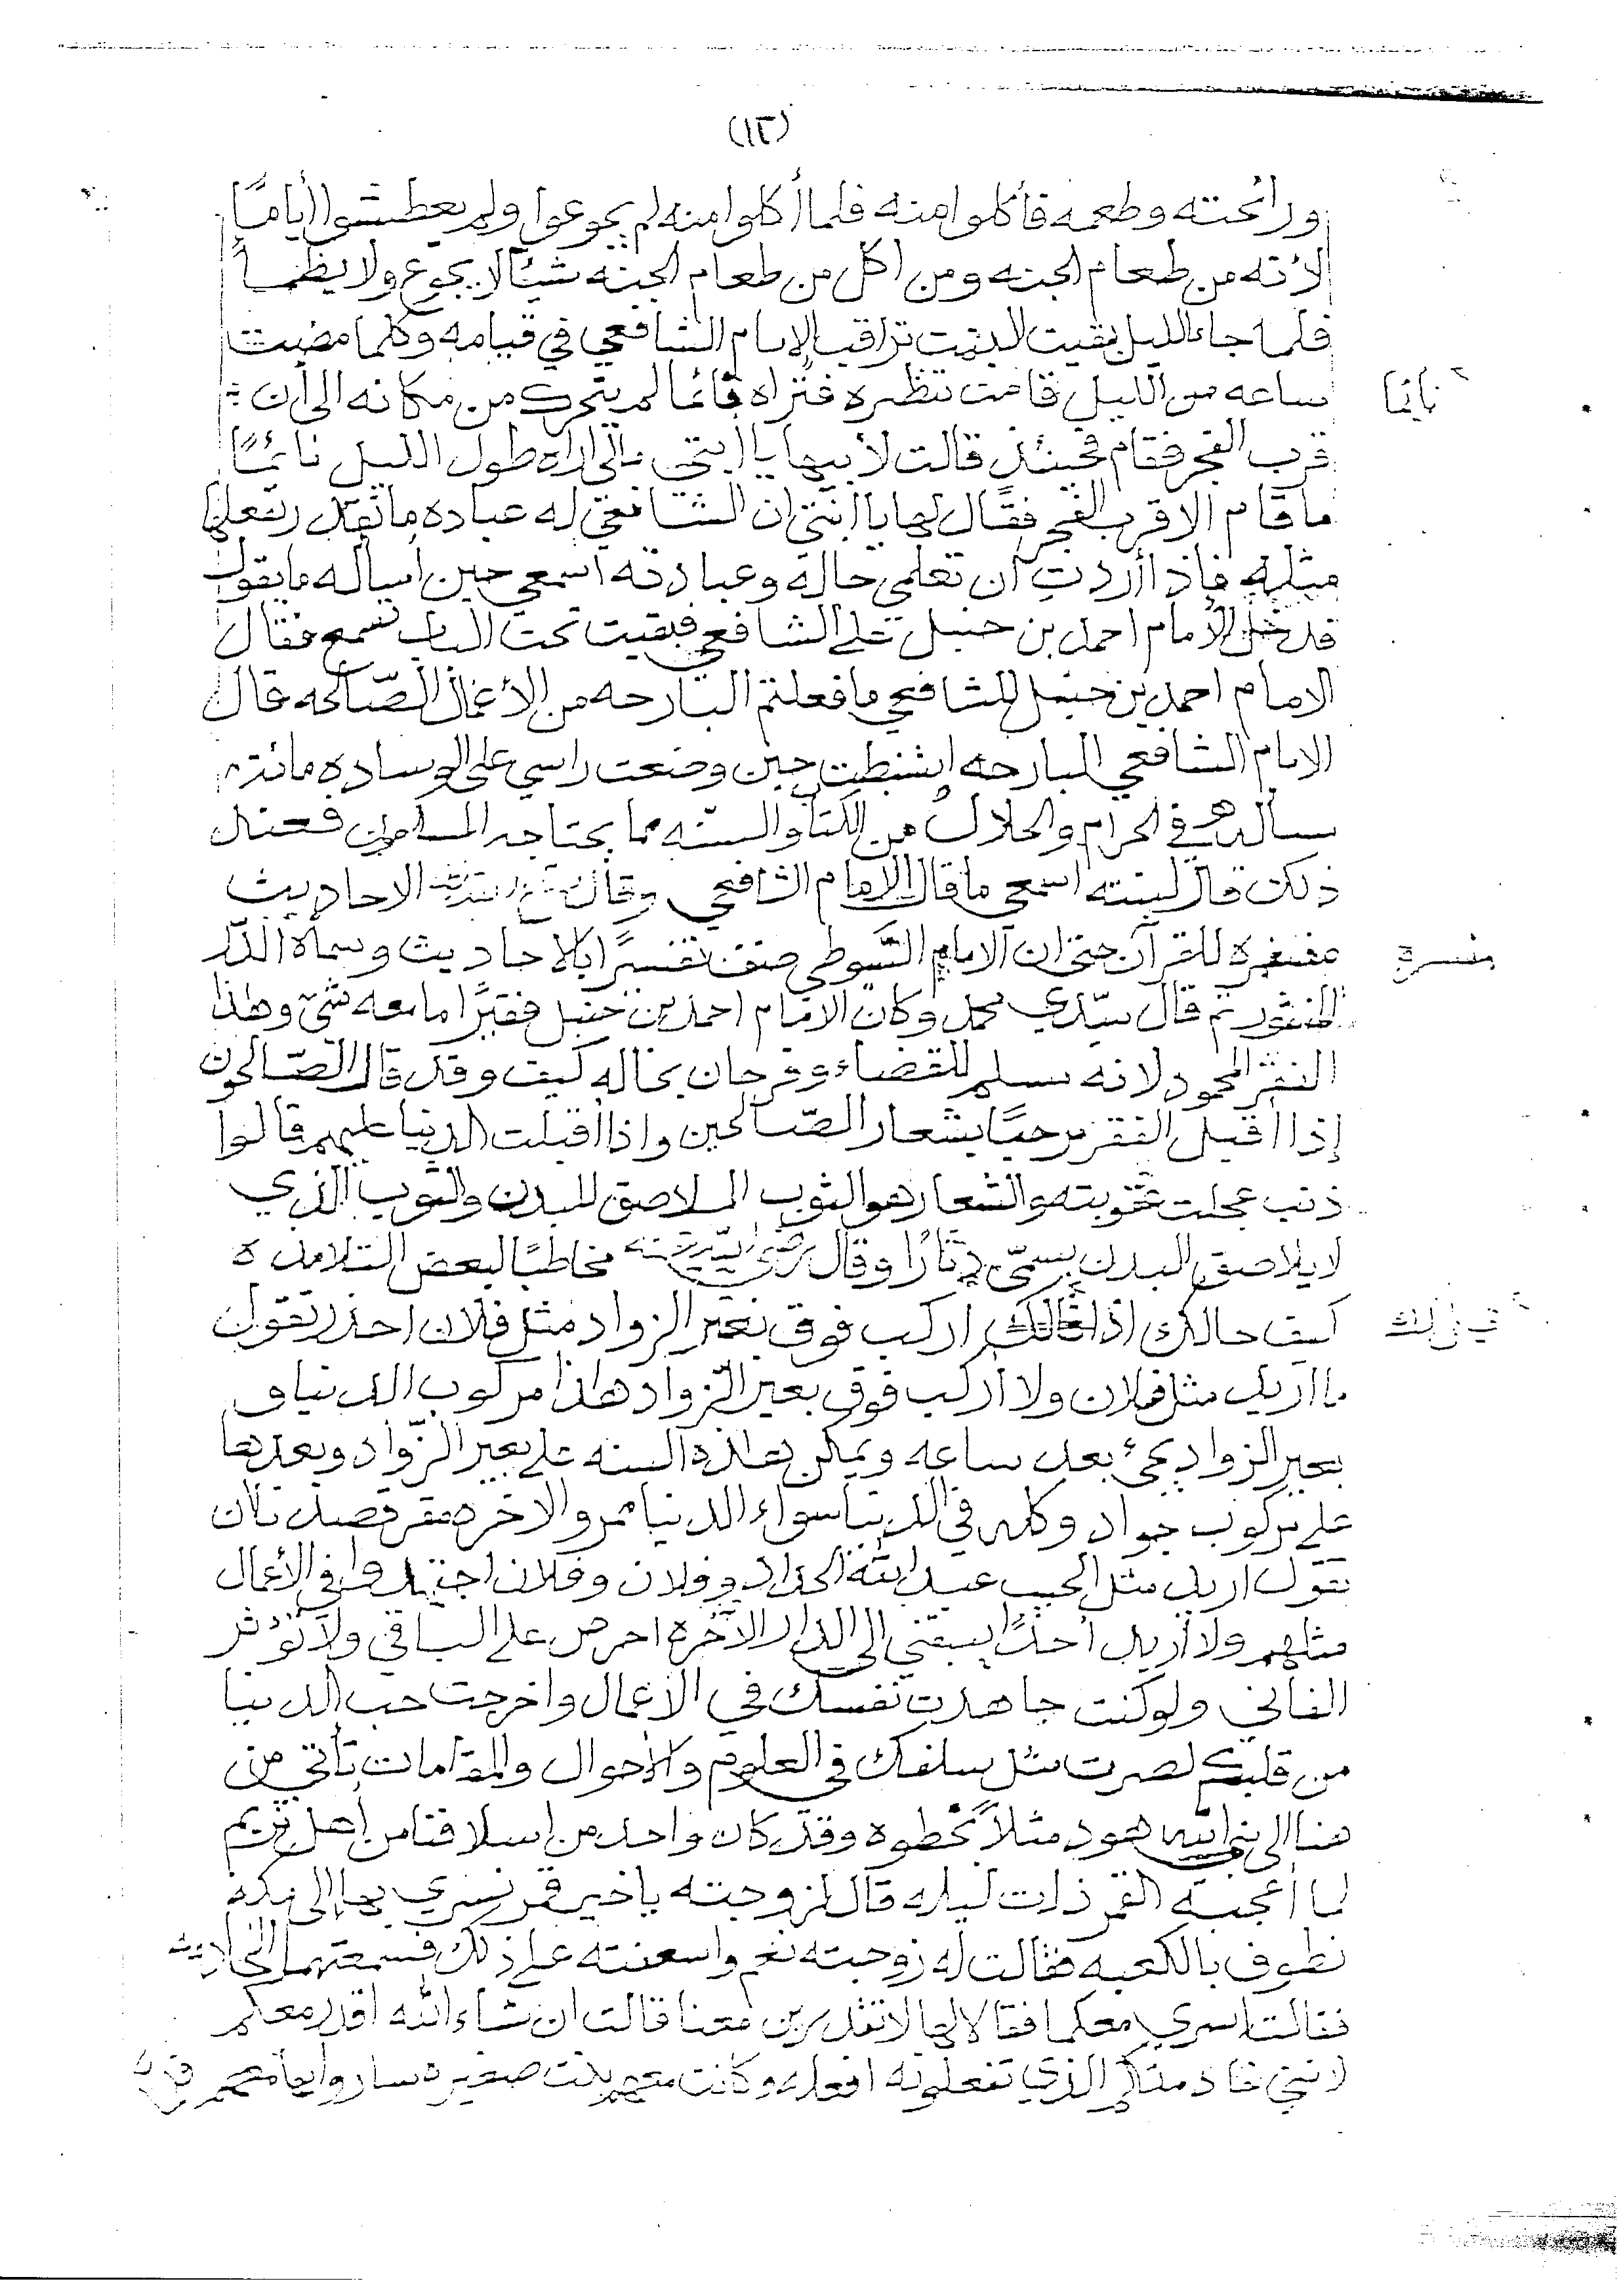 (١٢)
ورائحته وطعمه فأكلوا منه فلما أكلوا منه لم يجوعوا ولم يعطشوا أياماً
لأنه من طعام الجنه ومن اكل من طعام الجنه شيئاً لا يجوع ولا يظمأ
فلما جاء الليل بقيت البنت تراقب الإمام الشافعي في قيامه وكلما مضت
ساعه من الليل قامت تنظره فتراه قائما لم يتحرك من مكانه الى أن
نائما
قرب الفجر فقام فحينئذ قالت لأبيها يا ابتي مالي اراه طول الليل نائماً
ما قام الا قرب الفجر فقال لها يا ابنتي ان الشافعي له عباده ما نقدر نفعلها
مثله فاذا أردت أن تعلمي حاله وعبادته اسمعي حين اسأله ما يقول
فدخل الإمام احمد بن حنبل على الشافعي فبقيت تحت الباب تسمع فقال
الامام احمد بن حنبل للشافعي ما فعلتم البارحه من الأعمال الصّالحه قال
الامام الشافعي البارحه استنبطت حين وضعت راسي على الوساده مائة
مسألة في الحرام والحلال من الكتاب والسنّه مما يحتاجه المسلمون فعند
ذلك قال لبنته اسمعي ما قال الامام الشافعي وقال الاحاديث
مفسره للقرآن حتى ان الامام السّيوطي صنف تفسيرًا بالاحاديث وسماه الدّر
مفسرة
المنثور ثم قال سيّدي محمد وكان الامام احمد بن حنبل فقيرًا ما معه شئ وهذا
الفقر المحمود لانه مسلم للقضاء وفرحان بحاله كيف وقد قال الصّالحون
إذا أقبل الفقر مرحبًا بشعار الصّالحين واذا أقبلت الدنيا عليهم قالوا
ذنب عجلت عقوبته والشعار هو الثوب الملاصق للبدن والثوب الذي
لا يلاصق البدن يسمّى دثارًا وقال رضي الله عنه مخاطبًا لبعض التلامذه
كيف حالك اذا قالك اركب فوق بعير الزواد مثل فلان احذر تقول
ما اريد مثل فلان ولا اركب فوق بعير الزواد هذا مركوب الدنيا و
بعير الزواد يجئ بعد ساعه ويمكن هذه السنه على بعير الزّواد وبعدها
على مركوب جواد وكله في الدنيا سواء الدنيا ممر والاخره مقر قصدنا أن
تقول اريد مثل الحبيب عبد الله الحداد وفلان وفلان اجتهدوا في الأعمال
مثلهم ولا أريد أحدًا يسبقني الى الدار الآخره احرص على الباقي ولا تؤثر
الفاني ولو كنت جاهدت نفسك في الاعمال واخرجت حب الدنيا
من قلبك لصرت مثل سلفك في العلوم والأحوال والمقامات تأتي من
هنا الى نبي الله هود مثلاً بخطوه وقد كان واحد من اسلافنا من اهل تريم
لما أعجبه القمر ذات ليله قال لزوجته يا خير قمر نسري بها إلى مكه
نطوف بالكعبه فقالت له زوجته نعم واسعفته على ذلك فسمعتهما
فقالت اسري معكما فقالا لها لا تقدرين معنا قالت ان شاء الله اقدر معكم
لانني الذي تفعلونه افعله وكانت معهم بنت صغيره ساروا بها معهم